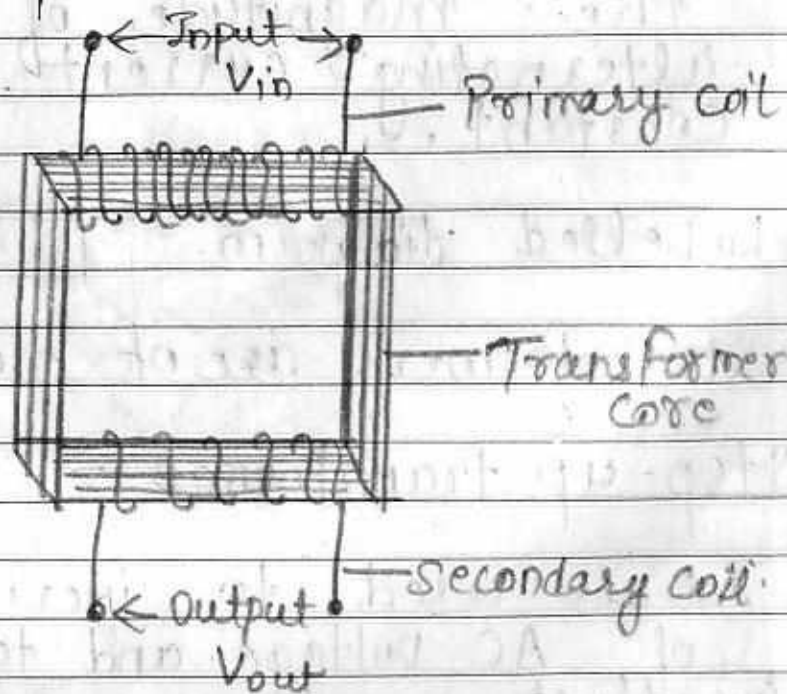 Input
Vin
Primary coil
Transformer
core
Secondary coil.
Output
Vout